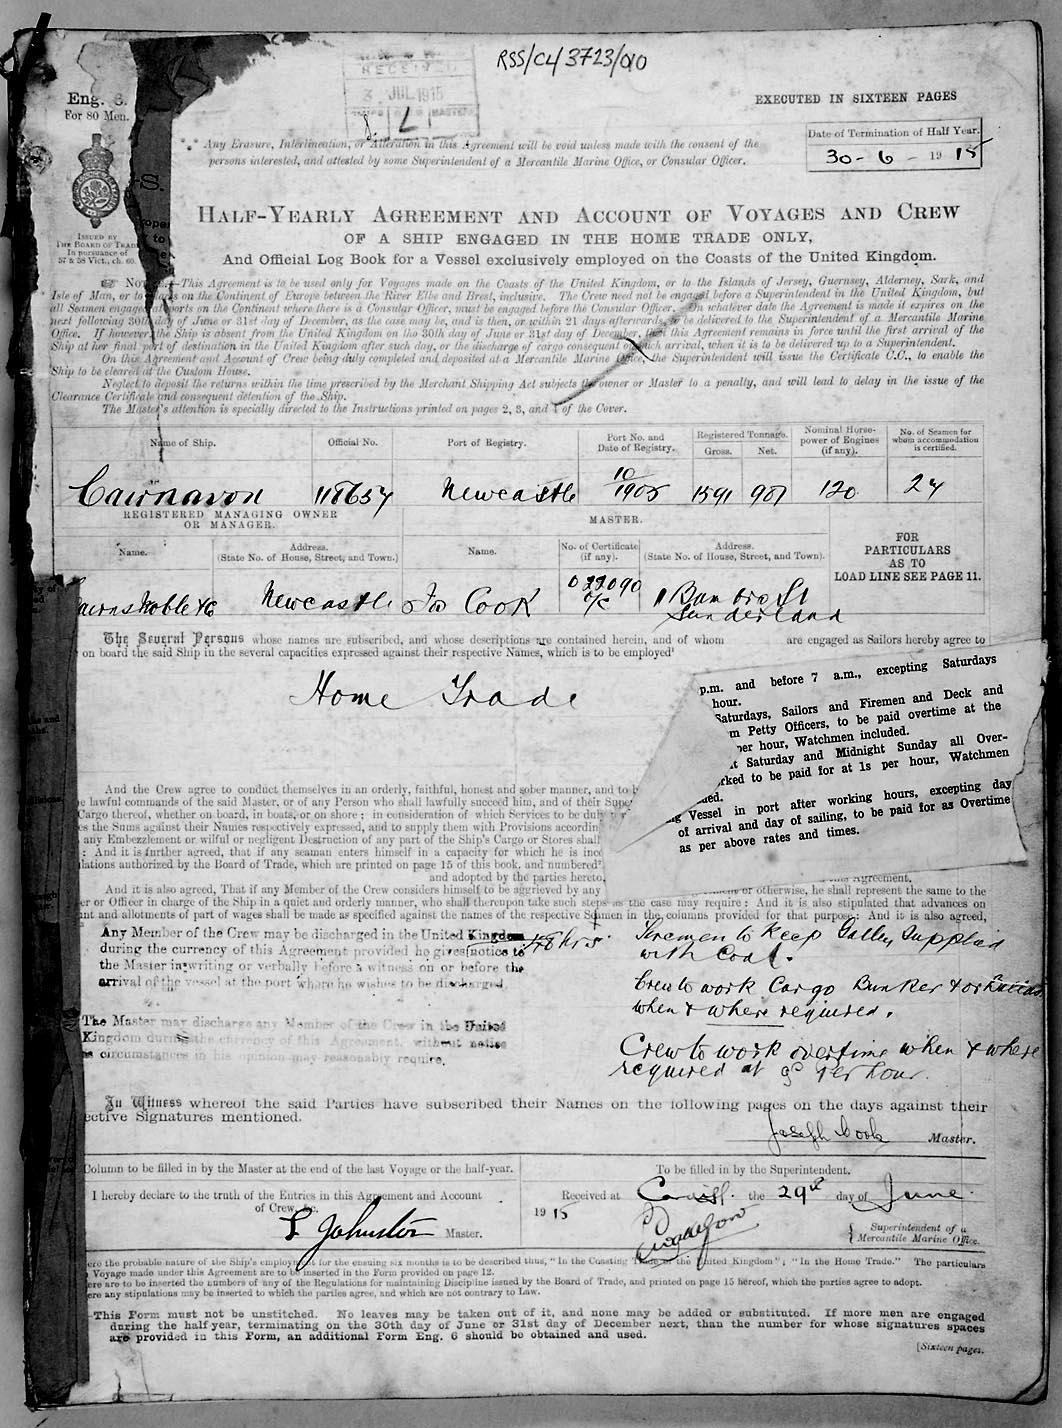 RSS/CL/3723/010
Eng. 6.
For 80 Men.
RECEIVED
3 JUL 1915
EXECUTED IN SIXTEEN PAGES
Date of Termination of Half Year.
30 - 6 - 1915
Any Erasure, Interlineation, or Alteration in this Agreement will be void unless made with the consent of the
persons interested, and attested by some Superintendent of a Mercantile Marine Office, or Consular Officer.
ISSUED BY
THE BOARD OF TRADE
In pursuance of
57 & 58 Vict., ch. 60.
HALF-YEARLY AGREEMENT AND ACCOUNT OF VOYAGES AND CREW
OF A SHIP ENGAGED IN THE HOME TRADE ONLY,
And Official Log Book for a Vessel exclusively employed on the Coasts of the United Kingdom.
This Agreement is to be used only for Voyages made on the Coasts of the United Kingdom, or to the Islands of Jersey, Guernsey, Alderney, Sark, and
Isle of Man, or to Ports on the Continent of Europe between the River Elbe and Brest, inclusive. The Crew need not be engaged before a Superintendent in the United Kingdom, but
all Seamen engaged at ports on the Continent where there is a Consular Officer, must be engaged before the Consular Officer. On whatever date the Agreement is made it expires on the
next following 30th day of June or 31st day of December, as the case may be, and it then, or within 21 days afterwards, to be delivered to the Superintendent of a Mercantile Marine
Office. If however, the Ship is absent from the United Kingdom on the 30th day of June or 31st day of December, the this Agreement remains in force until the first arrival of the
Ship at her final port of destination in the United Kingdom after such day, or the discharge of cargo consequent on such arrival, when it is to be delivered up to a Superintendent.
On this Agreement and Account of Crew being duly completed and deposited at a Mercantile Marine Office, the Superintendent will issue the Certificate C.C., to enable the
Ship to be cleared at the Custom House.
Neglect to deposit the returns within the time prescribed by the Merchant Shipping Act subjects the owner or Master to a penalty, and will lead to delay in the issue of the
Clearance Certificate and consequent detention of the Ship.
The Master's attention is specially directed to the Instructions printed on pages 2, 3, and 4 of the Cover.
Name of Ship. Official No. Port of Registry. Port No. and Date of Registry. Registered Tonnage. Gross. Net. Nominal Horse-power of Engines (if any). No. of Seamen for whom accommodation is certified.
Cairnavon 118657 Newcastle 10/1905 1591 901 120 24
REGISTERED MANAGING OWNER
OR MANAGER.
MASTER.
Name. Address. (State No. of House, Street, and Town.) Name. No. of Certificate (if any). Address. (State No. of House, Street, and Town).
FOR
PARTICULARS
AS TO
LOAD LINE SEE PAGE 11.
Cairns Noble & Co Newcastle Jos Cook 022090 O/C 11 Bamboro St
Sunderland
The Several Persons whose names are subscribed, and whose descriptions are contained herein, and of whom are engaged as Sailors hereby agree to
on board the said Ship in the several capacities expressed against their respective Names, which is to be employed
Home Trade
p.m. and before 7 a.m., excepting Saturdays
hour.
Saturdays, Sailors and Firemen and Deck and
m Petty Officers, to be paid overtime at the
per hour, Watchmen included.
t Saturday and Midnight Sunday all Over-
rked to be paid for at 1s per hour, Watchmen
ded.
g Vessel in port after working hours, excepting day
of arrival and day of sailing, to be paid for as Overtime
as per above rates and times.
And the Crew agree to conduct themselves in an orderly, faithful, honest and sober manner, and to b
lawful commands of the said Master, or of any Person who shall lawfully succeed him, and of their Supe
Cargo thereof, whether on board, in boats, or on shore; in consideration of which Services to be duly
es the Sums against their Names respectively expressed, and to supply them with Provisions accordin
any Embezzlement or wilful or negligent Destruction of any part of the Ship's Cargo or Stores shall
: And it is further agreed, that if any seaman enters himself in a capacity for which he is inco
lations authorized by the Board of Trade, which are printed on page 15 of this book, and numbered
and adopted by the parties hereto, Agreement.
And it is also agreed, That if any Member of the Crew considers himself to be aggrieved by any or otherwise, he shall represent the same to the
er or Officer in charge of the Ship in a quiet and orderly manner, who shall thereupon take such steps as the case may require: And it is also stipulated that advances on
nt and allotments of part of wages shall be made as specified against the names of the respective Seamen in the columns provided for that purpose: And it is also agreed,
Any Member of the Crew may be discharged in the United Kingdom
during the currency of this Agreement provided he gives notice to
48 hrs
the Master in writing or verbally before a witness on or before the
arrival of the vessel at the port where he wishes to be discharged
The Master may discharge any Member of the Crew in the United
Kingdom during the currency of this Agreement, without notice
as circumstances in his opinion may reasonably require.
Firemen to keep Galley supplied
with Coal.
Crew to work Cargo Bunker & or
when & where required.
Crew to work overtime when & where
required at 9d per hour.
In Witness whereof the said Parties have subscribed their Names on the following pages on the days against their
ective Signatures mentioned.
Joseph Cook Master.
Column to be filled in by the Master at the end of the last Voyage or the half-year.
I hereby declare to the truth of the Entries in this Agreement and Account
of Crew, &c.
Johnston Master.
To be filled in by the Superintendent.
Received at Cardiff. the 29th day of June
1915
Superintendent of a
Mercantile Marine Office.
ere the probable nature of the Ship's employment for the ensuing six months is to be described thus, "In the Coasting Trade of the United Kingdom"; "In the Home Trade." The particulars
Voyage made under this Agreement are to be inserted in the Form provided on page 12.
ere are to be inserted the numbers of any of the Regulations for maintaining Discipline issued by the Board of Trade, and printed on page 15 hereof, which the parties agree to adopt.
ere any stipulations may be inserted to which the parties agree, and which are not contrary to Law.
This Form must not be unstitched. No leaves may be taken out of it, and none may be added or substituted. If more men are engaged
during the half year, terminating on the 30th day of June or 31st day of December next, than the number for whose signatures spaces
are provided in this Form, an additional Form Eng. 6 should be obtained and used.
[Sixteen pages.